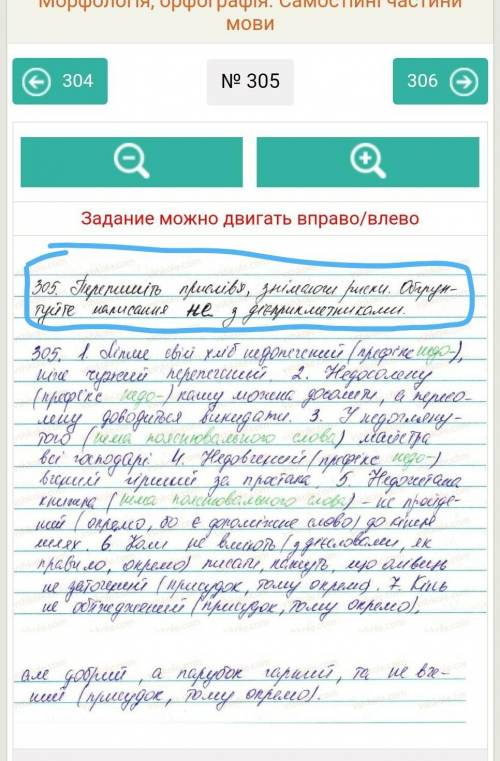 Морфологія, орфографія. Самостійні частини
мови
304
№ 305
306
Задание можно двигать вправо/влево
305. Перепишіть прислівя, знімаючи риски. Обґрун-
туйте написання не з дієприкметниками.
305. 1. Ліпше свій хліб недопечений (префікс недо-),
ніж чужий перепечений. 2. Недосолену
(префікс недо-) кашу можна досолити, а пересо-
лену доводиться викидати. 3. У недогляну-
того (нема пояснювального слова) майстра
всі господарі. 4. Недовчений (префікс недо-)
вчений гірший за простака. 5. Недочитана
книжка (нема пояснювального слова) – не пройде-
ний (окремо, бо є допоміжне слово) до кінця
шлях. 6. Коли не вміють (з дієсловами, як
правило, окремо) писати, кажуть, що олівець
не заточений (присудок, тому окремо). 7. Кінь
не обїжджений (присудок, тому окремо),
але добрий, а парубок гарний, та не вче-
ний (присудок, тому окремо).